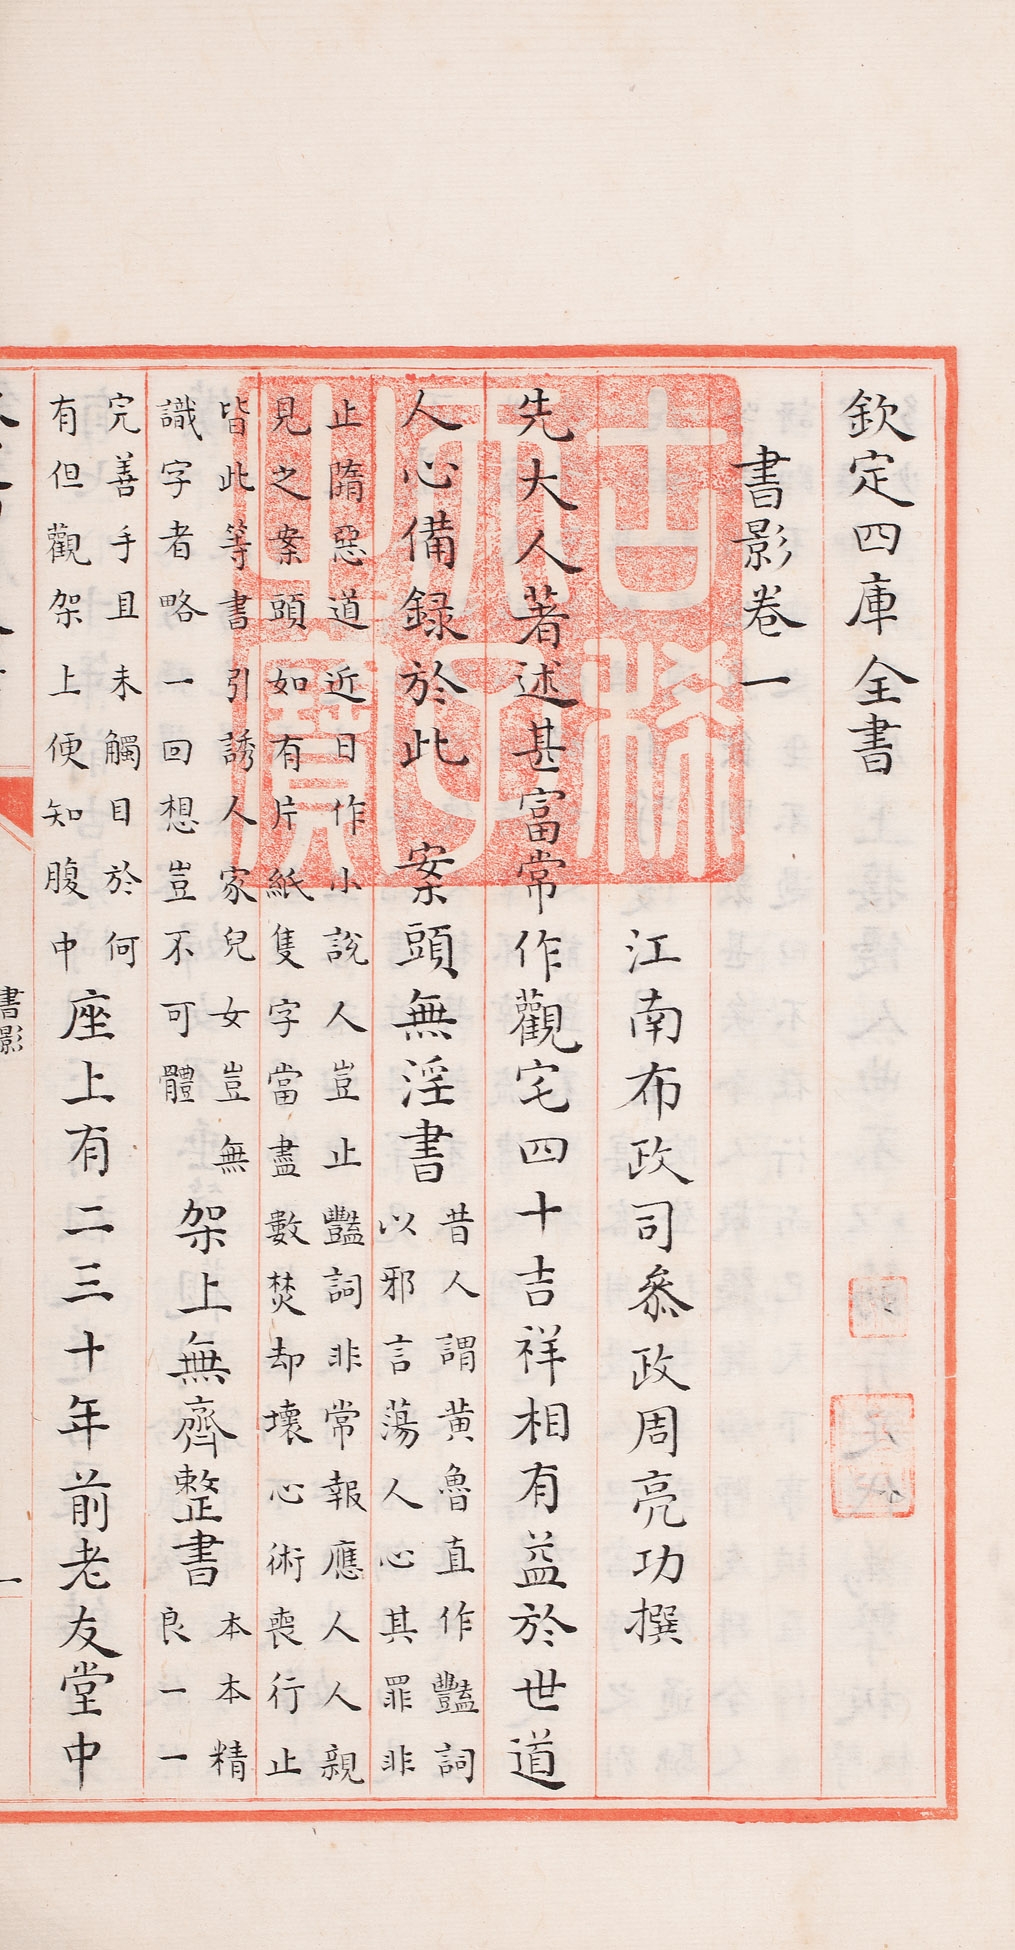 欽定四庫全書
書影卷一
江南布政司叅政周亮功撰
先大人著述甚富常作觀宅四十吉祥相有益於世道
人心備録於此 案頭無淫書
昔人謂黄魯直作豔詞
以邪言蕩人心其罪非
止隋惡道近日作小說人豈止豔詞非常報應人人親
見之案頭如有片紙隻字當盡數焚却壞心術喪行止
皆此等書引誘人家兒女豈無
識字者略一回想豈不可體
架上無齊整書
本本精
良一一
完善手且未觸目於何
有但觀架上便知腹中
座上有二三十年前老友堂中
書影
一
古稀天子之寶